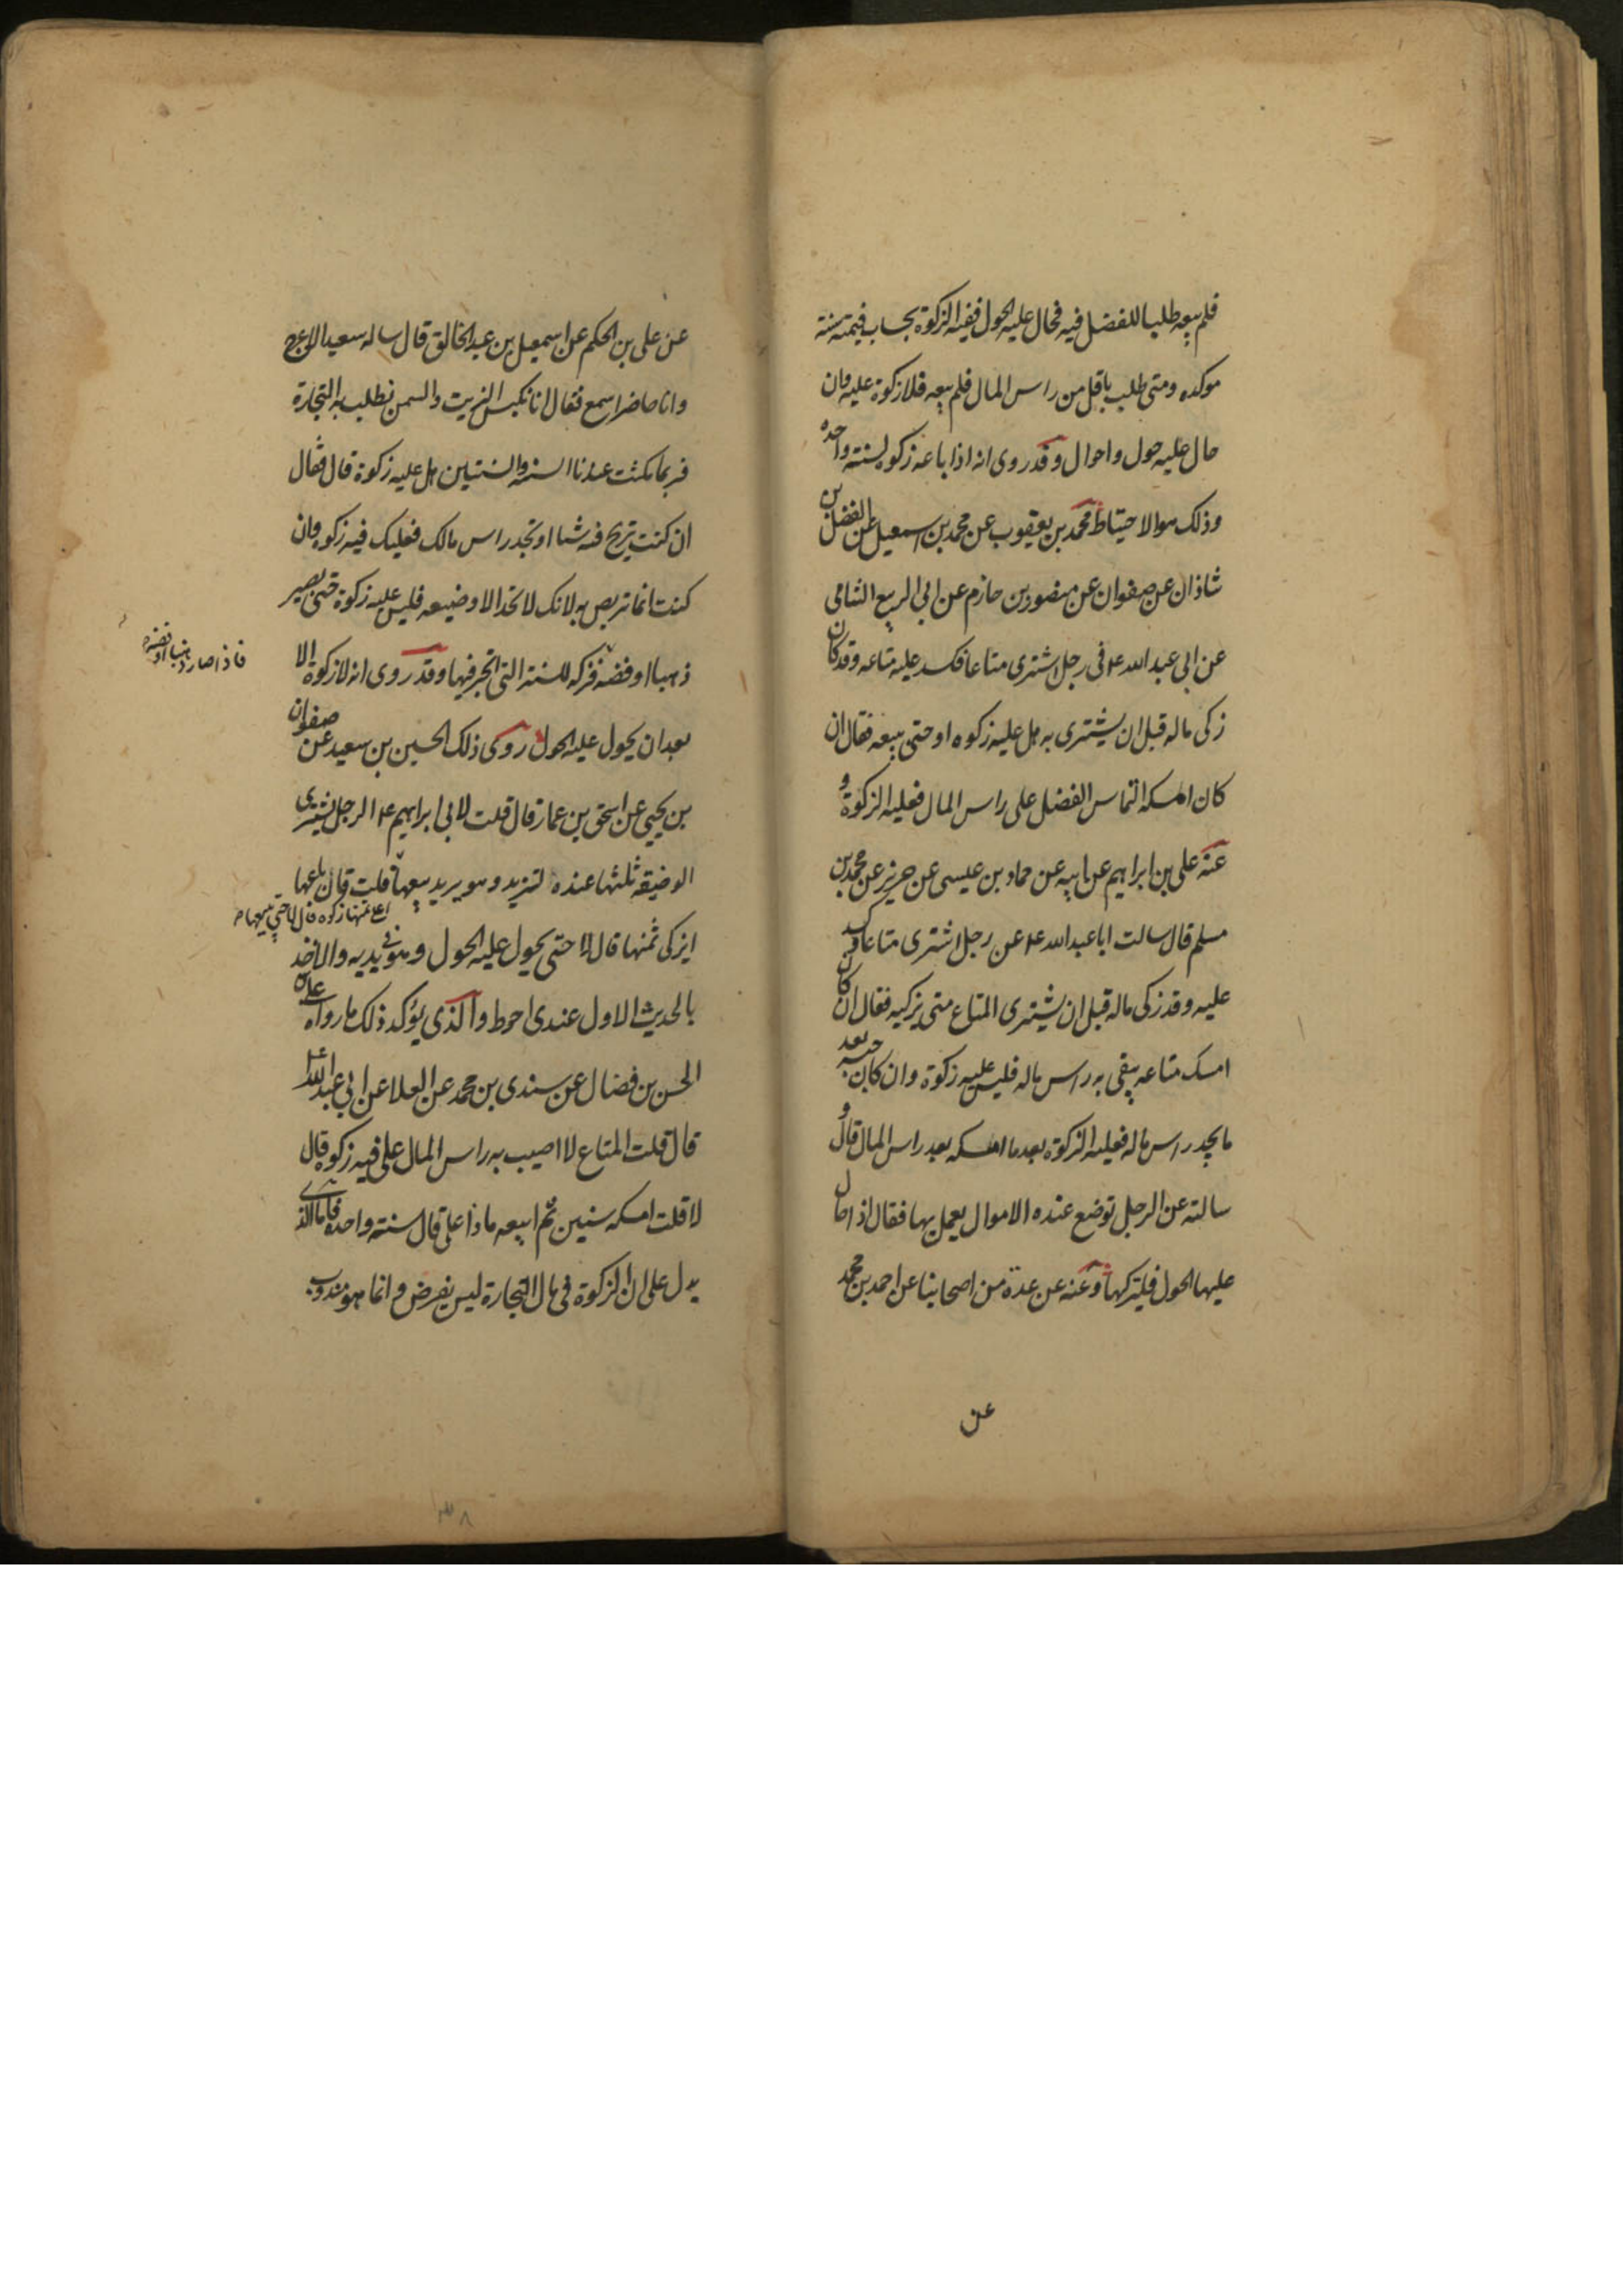 فلم يبعه طلبا للفضل فيه فحال عليه الحول ففيه الزكوة بحساب قيمته سنة
موكده ومتى طلب باقل من راس المال فلم يبعه فلا زكوة عليه وان
حال عليه حول واحوال وقد روى انه اذا باعه زكوه لسنته واحده
وذلك هو الاحتياط محمد بن يعقوب عن محمد بن اسمعيل عن الفضل بن
شاذان عن صفوان عن منصور بن حازم عن ابي الربيع الشامى
عن ابي عبد الله ع في رجل اشترى متاعا فكسد عليه متاعه وقد كان
زكى ماله قبل ان يشترى به هل عليه زكوه او حتى يبيعه فقال ان
كان امسكه التماس الفضل على راس المال فعليه الزكوة و
عنه على بن ابراهيم عن ابيه عن حماد بن عيسى عن حريز عن محمد بن
مسلم قال سالت ابا عبد الله ع عن رجل اشترى متاعا وكسد
عليه وقد زكى ماله قبل ان يشترى المتاع متى يزكيه فقال ان كان
امسك متاعه يبقى به راس ماله فليس عليه زكوة وان كان حبسه بعد
ما يجد راس ماله فعليه الزكوة بعد ما امسكه بعد راس المال قال و
سالته عن الرجل توضع عنده الاموال يعمل بها فقال اذا حال
عليها الحول فليزكها وعنه عن عدة من اصحابنا عن احمد بن محمد
عن
عن على بن الحكم عن اسمعيل بن عبد الخالق قال ساله سعيد الاعرج
وانا حاضر اسمع فقال انا نكبس الزيت والسمن نطلب به التجارة
فربما مكثت عندنا السنه والسنتين هل عليه زكوة قال فقال
ان كنت تربح فيه شيئا او تجد راس مالك فعليك فيه زكوه وان
كنت انما تربص به لانك لا تجد الا وضيعه فليس عليه زكوة حتى يصير
ذهبا او فضه فزكه للسنة التى اتجر فيها وقد روى انه لا زكوة الا
فاذا صار ذهبا او فضه
بعد ان يحول عليه الحول روى ذلك الحسين بن سعيد عن صفوان
بن يحيى عن اسحق بن عمار قال قلت لابي ابراهيم ع الرجل يشترى
الوضيفه ثلثها عنده لتزيد وهو يريد بيعها قلت فان باعها
اعلى ثمنها زكوه قال لا حتى يبيعها
ايزكى ثمنها قال لا حتى يحول عليه الحول وهو في يديه والاخذ
بالحديث الاول عندى احوط والذى يؤكد ذلك ما رواه على
الحسن بن فضال عن سندى بن محمد عن العلا عن ابي عبد الله ع
قال قلت المتاع لا اصيب به راس المال على فيه زكوه قال
لا قلت امسكه سنين ثم ابيعه ماذا على قال سنة واحده فاما الذى
يدل على ان الزكوة في مال التجارة ليس بفرض وانما هو مندوب
٣٨